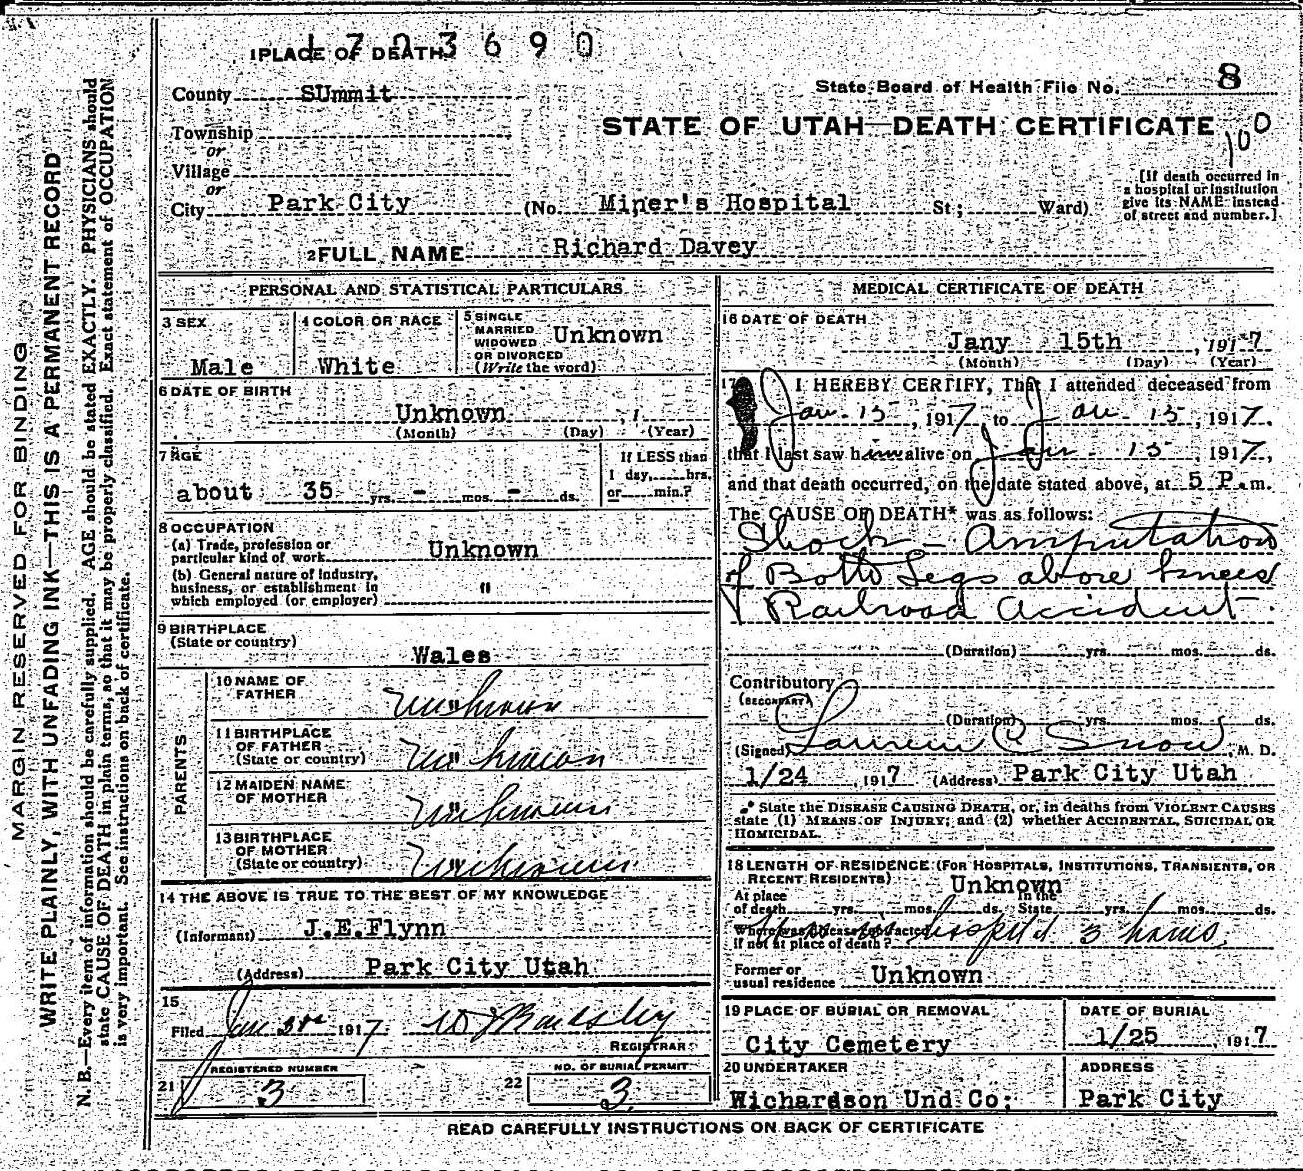 1703690
1 PLACE OF DEATH
County SUmmit
State Board of Health File No. 8
Township
or
STATE OF UTAH—DEATH CERTIFICATE
100
Village
or
City Park City (No. Miner's Hospital St; Ward)
[If death occurred in
a hospital or institution
give its NAME instead
of street and number.]
2 FULL NAME Richard Davey
MARGIN RESERVED FOR BINDING
WRITE PLAINLY, WITH UNFADING INK—THIS IS A PERMANENT RECORD
N. B.—Every item of information should be carefully supplied. AGE should be stated EXACTLY. PHYSICIANS should
state CAUSE OF DEATH in plain terms, so that it may be properly classified. Exact statement of OCCUPATION
is very important. See instructions on back of certificate.
PERSONAL AND STATISTICAL PARTICULARS
3 SEX
Male
4 COLOR OR RACE
White
5 SINGLE
MARRIED
WIDOWED
OR DIVORCED
(Write the word)
Unknown
6 DATE OF BIRTH
Unknown , 1
(Month) (Day) (Year)
7 AGE
about 35 yrs. - mos. - ds.
If LESS than
1 day, hrs.
or min.?
8 OCCUPATION
(a) Trade, profession or
particular kind of work Unknown
(b) General nature of industry,
business, or establishment in
which employed (or employer) "
9 BIRTHPLACE
(State or country)
Wales
PARENTS
10 NAME OF
FATHER
Unknown
11 BIRTHPLACE
OF FATHER
(State or country)
Unknown
12 MAIDEN NAME
OF MOTHER
Unknown
13 BIRTHPLACE
OF MOTHER
(State or country)
Unknown
14 THE ABOVE IS TRUE TO THE BEST OF MY KNOWLEDGE
(Informant) J.E.Flynn
(Address) Park City Utah
15
Filed Jan 1917
REGISTRAR
21 REGISTERED NUMBER
3
22 NO. OF BURIAL PERMIT
3
MEDICAL CERTIFICATE OF DEATH
16 DATE OF DEATH
Jany 15th , 1917
(Month) (Day) (Year)
17 I HEREBY CERTIFY, That I attended deceased from
Jan. 15, 1917 to Jan. 15, 1917.
that I last saw him alive on Jan. 15, 1917,
and that death occurred, on the date stated above, at 5 P.m.
The CAUSE OF DEATH* was as follows:
Shock - Amputation
of Both Legs above knees
Railroad Accident.
(Duration) yrs. mos. ds.
Contributory
(SECONDARY)
(Duration) yrs. mos. ds.
(Signed) Snow, M. D.
1/24, 1917 (Address) Park City Utah
* State the DISEASE CAUSING DEATH, or, in deaths from VIOLENT CAUSES
state (1) MEANS OF INJURY; and (2) whether ACCIDENTAL, SUICIDAL OR
HOMICIDAL.
18 LENGTH OF RESIDENCE (FOR HOSPITALS, INSTITUTIONS, TRANSIENTS, OR
RECENT RESIDENTS) Unknown
At place
of death yrs. mos. ds.
In the
State yrs. mos. ds.
Where was disease contracted
if not at place of death?
hospital 3 hours
Former or
usual residence Unknown
19 PLACE OF BURIAL OR REMOVAL
City Cemetery
DATE OF BURIAL
1/25 1917
20 UNDERTAKER
Richardson Und.Co;
ADDRESS
Park City
READ CAREFULLY INSTRUCTIONS ON BACK OF CERTIFICATE